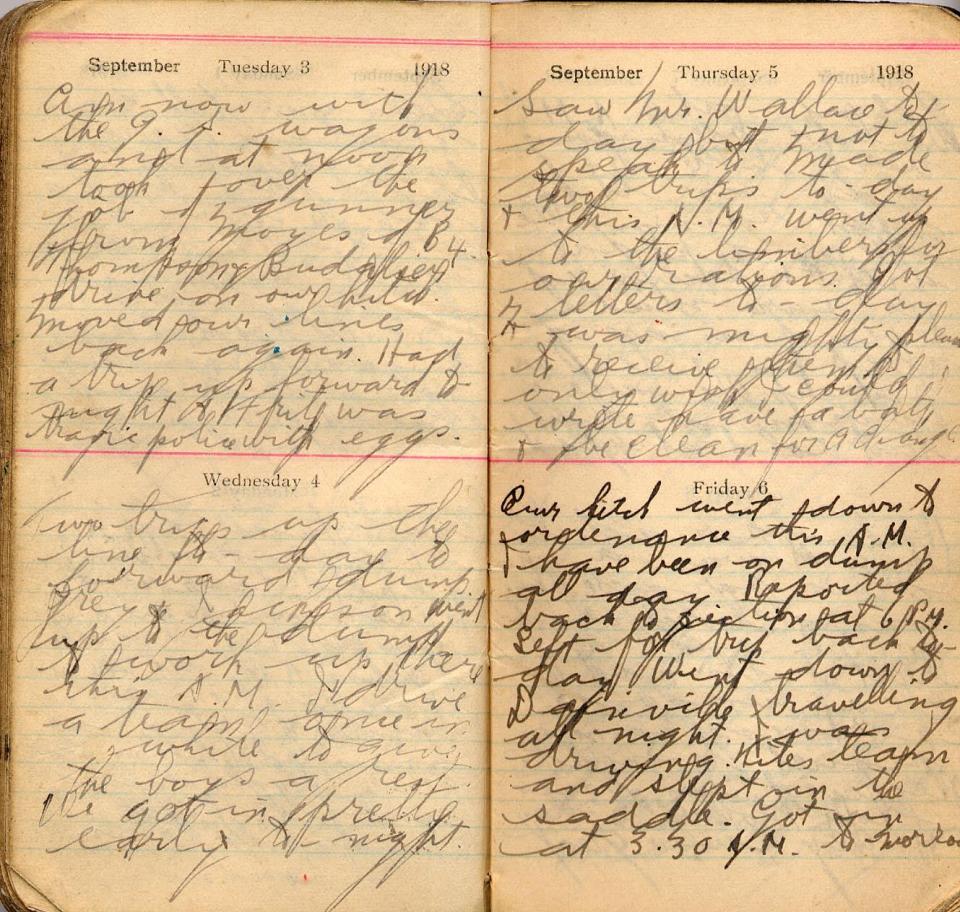 September Tuesday 3 1918
Am now with
the G. S. wagons
and at noon
took over the
job of gunner
from Moyes of B4.
Thompson, Budd
drive on our hitch.
Moved our lines
back again. Had
a trip up forward to
night & Fritz was
with eggs.
Wednesday 4
Two trips up the
line to-day to
forward dump.
Frey & went
up to the dump
to work up there
this A.M. I drive
a team once in
while to give
the boys a rest.
We got in pretty
early to-night.
September Thursday 5 1918
Saw Mr. Wallace to
day but not to
speak to made
two trips to-day
& this A.M. went up
to the for
our rations. Got
7 letters to-day
& was mighty pleas
to receive them. I
only wish I could
write & have a bath
& be clean for
Friday 6
Our hitch went down to
ordenance this A.M.
I have been on dump
all day Reported
back to section at 6 P.M.
Left for trip back to-
day Went down to
Dainville travelling
all night. I was
driving team
and slept in the
saddle. Got in
at 3.30 A.M. to morrow